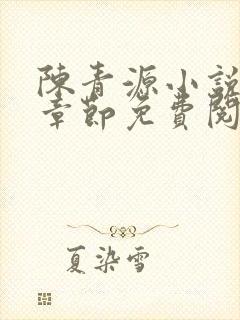 陳青源小說
章節免費閱
夏染雪